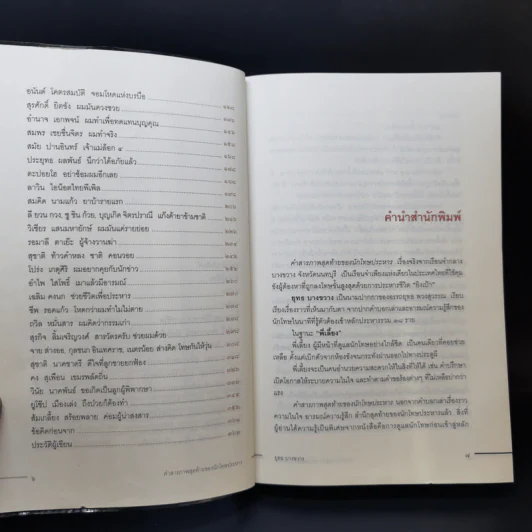 อนันต์ โคตรสมบัติ จอมโหดแห่งบรบือ
สุรศักดิ์ ยิดซัง ผมมันดวงซวย
อำนาจ เอกพจน์ ผมทำเพื่อทดแทนบุญคุณ
สมพร เชยชื่นจิตร ผมทำจริง
สมัย ปานอินทร์ เจ้าแม่ล็อก ๙
ประยุทธ ผลพันธ์ นึกว่าได้อภัยแล้ว
ตะปอยโฮ อย่าซ้อมผมอีกเลย
ลาวิน ไอน็อตไทยพีเพิล
สมคิด นามแก้ว ยาบ้ารายแรก
ลี ยวน กวง, ชู ชิน ก้วย, บุญเกิด จิตรปราณี แก๊งค้ายาข้ามชาติ
วิเชียร แสนมหายักษ์ ผมมันแค่รายย่อย
รอมาลี ตาเย๊ะ ผู้จ้างวานฆ่า
สุชาติ ท้าวคำหลง ชาติ คอนวอย
โปร่ง เกตุศิริ ผมอยากคุยกับนักข่าว
อำไพ ใสโพธิ์ เมาแล้วมีอารมณ์
เฉลิม คงนก ช่วยชีวิตเพื่อประหาร
ชีพ รอดแก้ว โหดกว่าผมทำไมไม่ตาย
ถวิล หมั่นสาร ผมคิดว่ากรรมเก่า
สุรกิจ ลิ้มเจริญวงศ์ สาวัตรครับ ช่วยผมด้วย
สุชาติ นาคชาตรี ดีใจที่ลูกชายยกฟ้อง
คง สุเพือน เขมรพลัดถิ่น
วินัย นาคพันธ์ ขอเกิดเป็นลูกผู้พิพากษา
ส้มเกลี้ยง สร้อยพลาย ค่อมผู้น่าสงสาร
ข้อคิดก่อนจาก
ประวัติผู้เขียน
๖
คำสารภาพสุดท้ายของนักโทษประหาร
คำนำสำนักพิมพ์
คำสารภาพสุดท้ายของนักโทษประหาร เรื่องจริงจากเรือนจำกลาง
บางขวาง จังหวัดนนทบุรี เป็นเรือนจำเพียงแห่งเดียวในประเทศไทยที่ใช้คุม
ขังผู้ต้องหาที่ถูกลงโทษขั้นสูงสุดด้วยการประหารชีวิต "ยิงเป้า"
ยุทธ บางขวาง เป็นนามปากกาของอรรถยุทธ พวงสุวรรณ เรียบ
เรียงเรื่องราวที่เห็นมากับตา จากปากคำบอกเล่าและอารมณ์ความรู้สึกของ
นักโทษในนาทีที่รู้ตัวต้องเข้าหลักประหารรวม ๓๘ ราย
ในฐานะ "พี่เลี้ยง"
พี่เลี้ยง ผู้มีหน้าที่ดูแลนักโทษอย่างใกล้ชิด เป็นคนเดียวที่คอยช่วย
เหลือ ตั้งแต่เบิกตัวจากห้องขังจนกระทั่งผ่านออกไปทางประตูผี
พี่เลี้ยงจะเป็นคนอำนวยความสะดวกในสิ่งที่ให้ได้ เช่น คำปรึกษา
เปิดโอกาสให้ระบายความในใจ และทำตามคำขอร้องต่างๆ ที่ไม่เหลือบ่ากว่า
แรง
คำสารภาพสุดท้ายของนักโทษประหาร นอกจากคำบอกเล่าเรื่องราว
ความในใจ อารมณ์ความรู้สึก สำนึกสุดท้ายของนักโทษประหารแล้ว สิ่งที่
ผู้อ่านได้ความรู้เป็นพิเศษจากหนังสือคือการดูแลนักโทษก่อนเข้าสู่หลัก
ยุทธ บางขวาง
๗